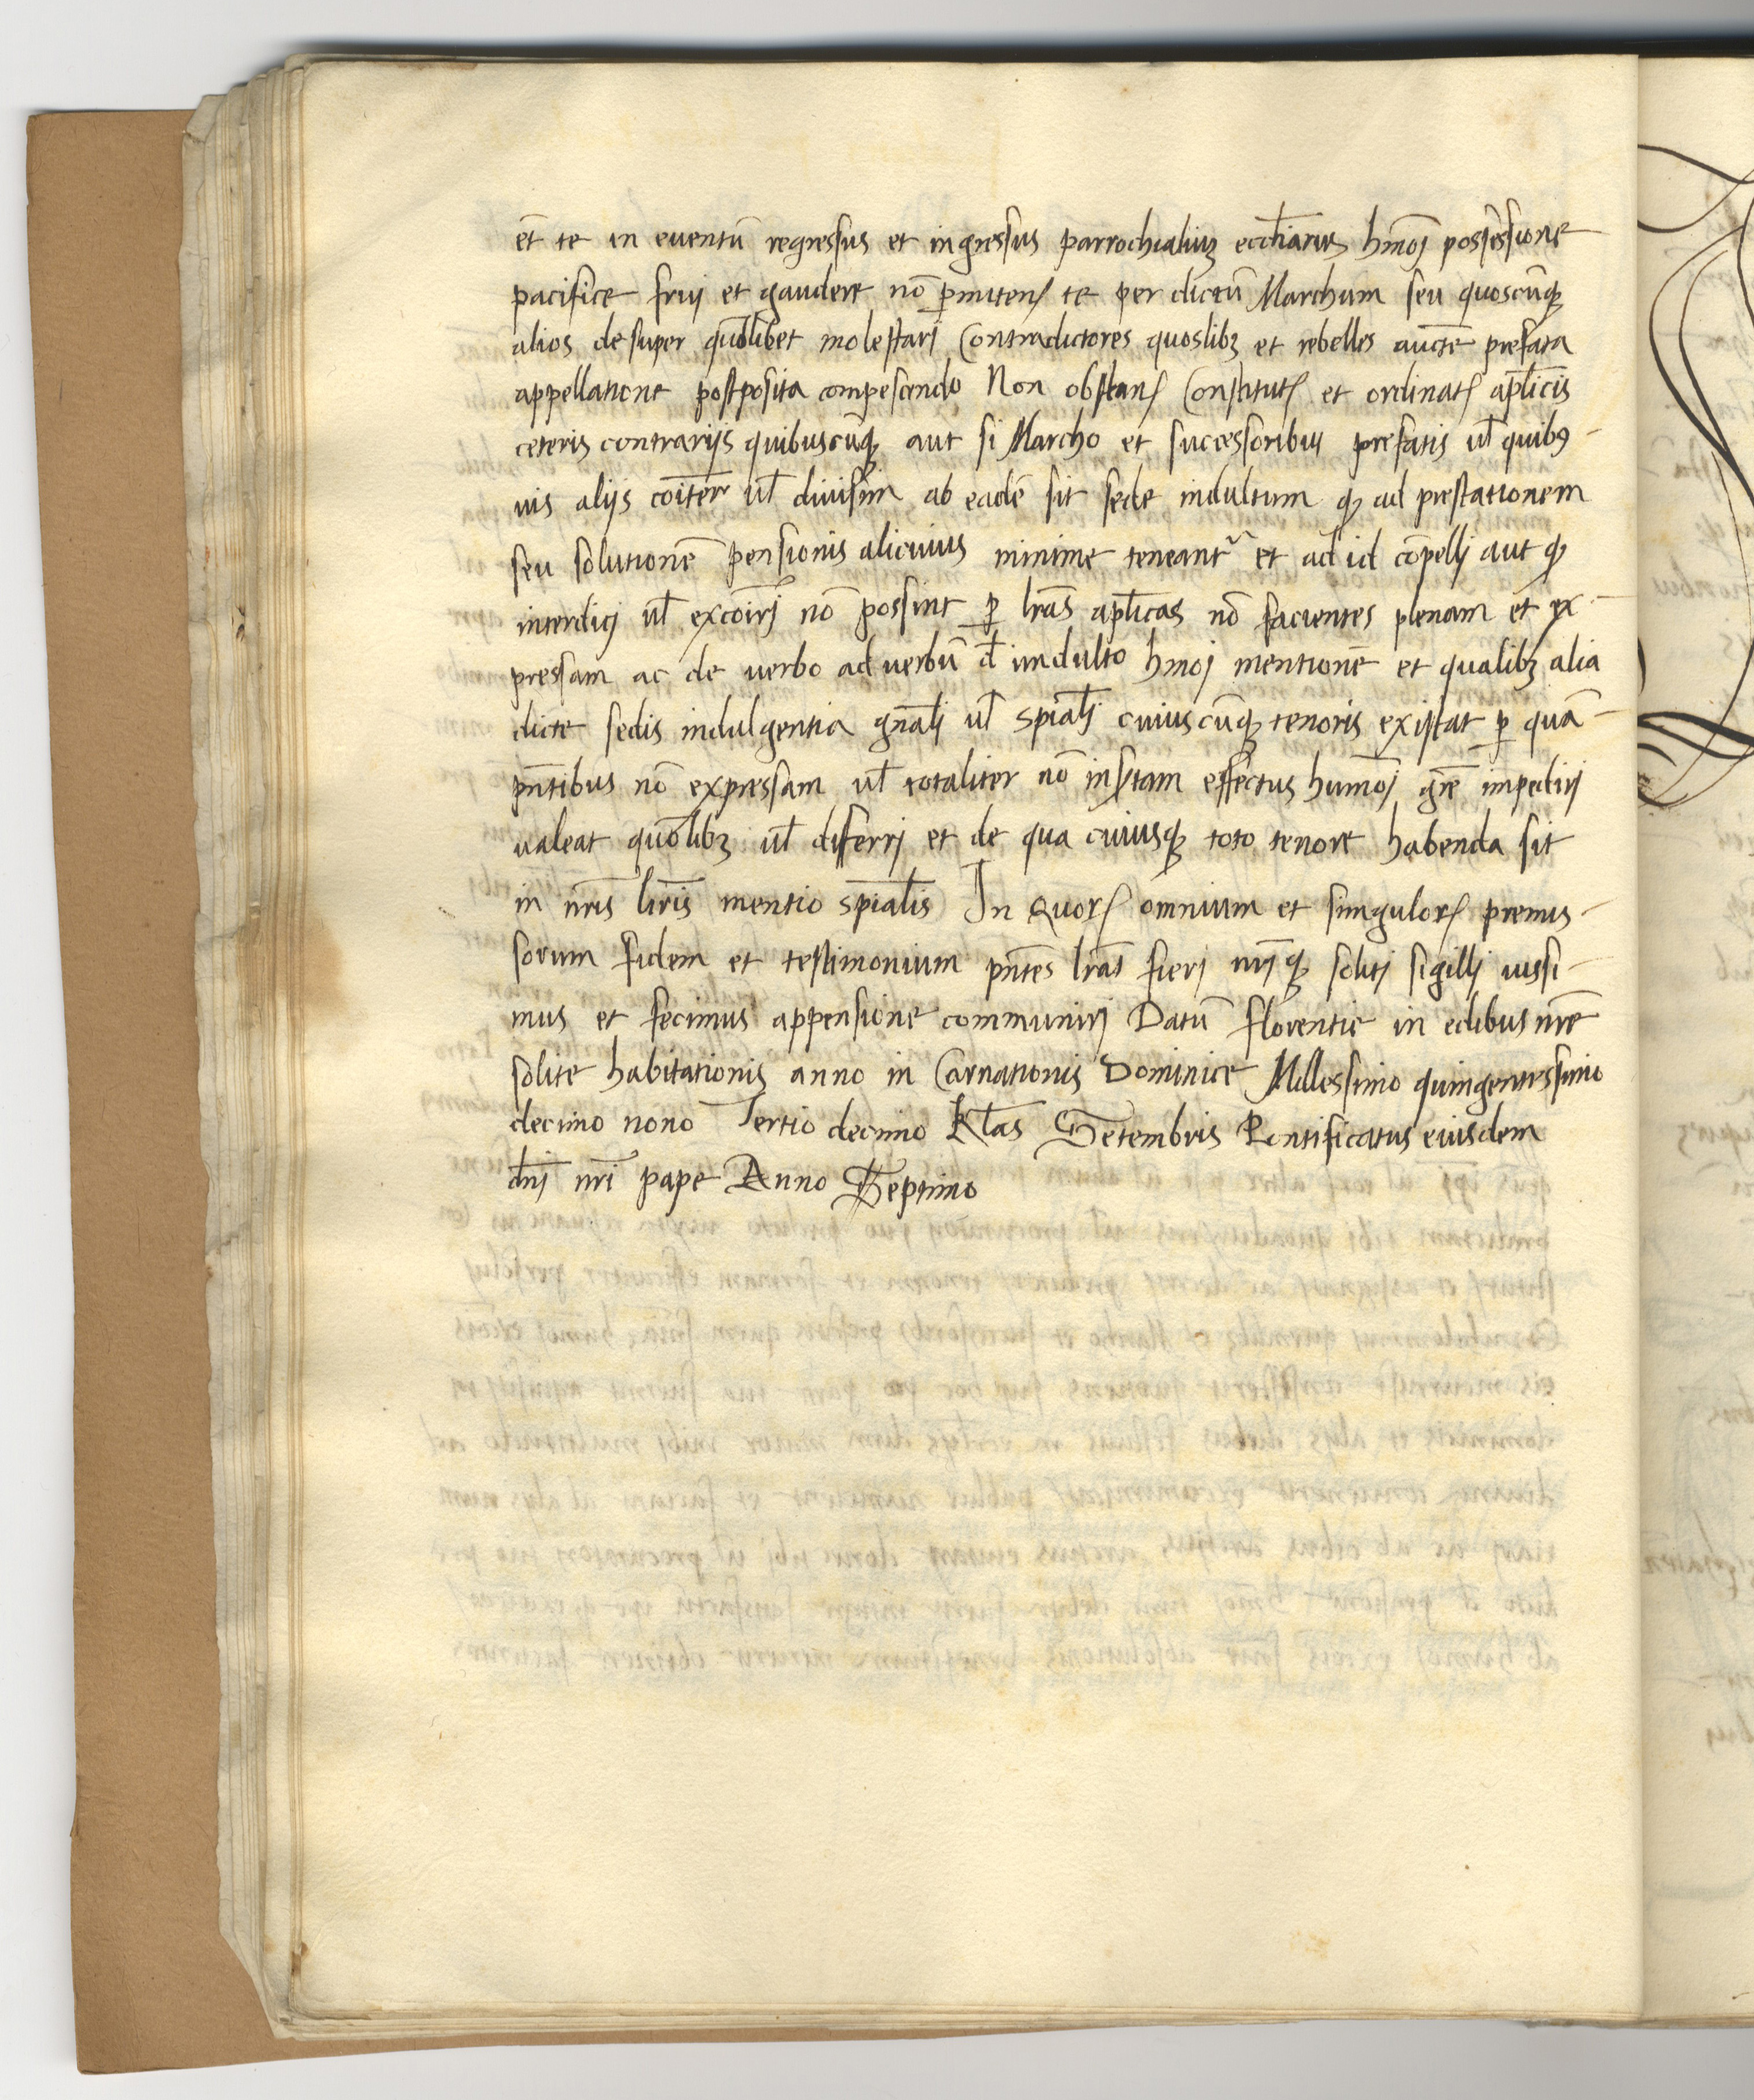 ēt te in euentū regressus et ingressus parrochialiuꝫ eccl̄iaruꝫ hmōi possessione
pacifice frui et gaudere nō ꝑmitteñ te per dictū Marchum seu quoscūqꝫ
alios desuper quōlibet molestari Contradictores quoslibꝫ et rebelles aucte p̄refata
appellatione postposita compescendo Non obstanꝭ Constitutꝭ et ordinatꝭ apl̄icis
ceteris contrarijs quibuscūqꝫ aut si Marcho et successoribus prefatis ul̄ quibꝯ-
uis alijs coīter ul̄ diuisim ab eadē sit sede indultum qꝫ ad prestationem
seu solutionē pensionis alicuius minime teneant᷑ et ad id cōpelli aut qꝫ
interdici ul̄ excoīri nō possint ꝑ lrās apl̄icas nō facientes plenam et ex-
pressam ac de verbo ad verbū d̄ indulto hmōi mentionē et qualibꝫ alia
dicte sedis indulgentia gn̄ali ul̄ spiāli cuiuscūqꝫ tenoris existat ꝑ quā-
pn̄tibus nō expressam ul̄ totaliter nō insertam effectus humōi grē impediri
ualeat quōlibꝫ ul̄ differri et de qua cuiusqꝫ toto tenore habenda sit
in nr̄is lr̄is mentio spiālis In Quorꝭ omnium et singulorꝭ premis-
sorum fidem et testimonium pn̄tes lrās fieri nr̄iqꝫ soliti sigilli iussi-
mus et fecimus appensione communiri Datū florentie in edibus nr̄e
solite habitationis anno in Carnationis Dominice Millessimo quingentessimo
decimo nono Tertio decimo Kl̄as Setembris Pontificatus eiusdem
dn̄i nr̄i pape Anno Septimo